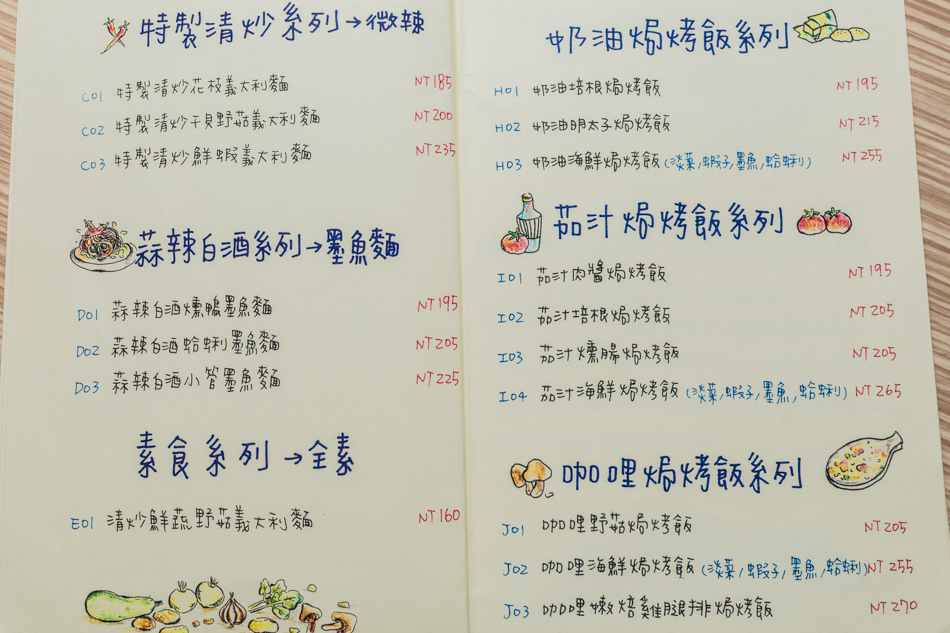 特製清炒系列→微辣
C01 特製清炒花枝義大利麵 NT185
C02 特製清炒干貝野菇義大利麵 NT200
C03 特製清炒鮮蝦義大利麵 NT235
蒜辣白酒系列→墨魚麵
D01 蒜辣白酒燻鴨墨魚麵 NT195
D02 蒜辣白酒蛤蜊墨魚麵 NT205
D03 蒜辣白酒小管墨魚麵 NT225
素食系列→全素
E01 清炒鮮蔬野菇義大利麵 NT160
奶油焗烤飯系列
H01 奶油培根焗烤飯 NT195
H02 奶油明太子焗烤飯 NT215
H03 奶油海鮮焗烤飯(淡菜,蝦子,墨魚,蛤蜊) NT255
茄汁焗烤飯系列
I01 茄汁肉醬焗烤飯 NT195
I02 茄汁培根焗烤飯 NT205
I03 茄汁燻腸焗烤飯 NT205
I04 茄汁海鮮焗烤飯(淡菜,蝦子,墨魚,蛤蜊) NT265
咖哩焗烤飯系列
J01 咖哩野菇焗烤飯 NT205
J02 咖哩海鮮焗烤飯(淡菜,蝦子,墨魚,蛤蜊) NT255
J03 咖哩嫩焙雞腿排焗烤飯 NT270